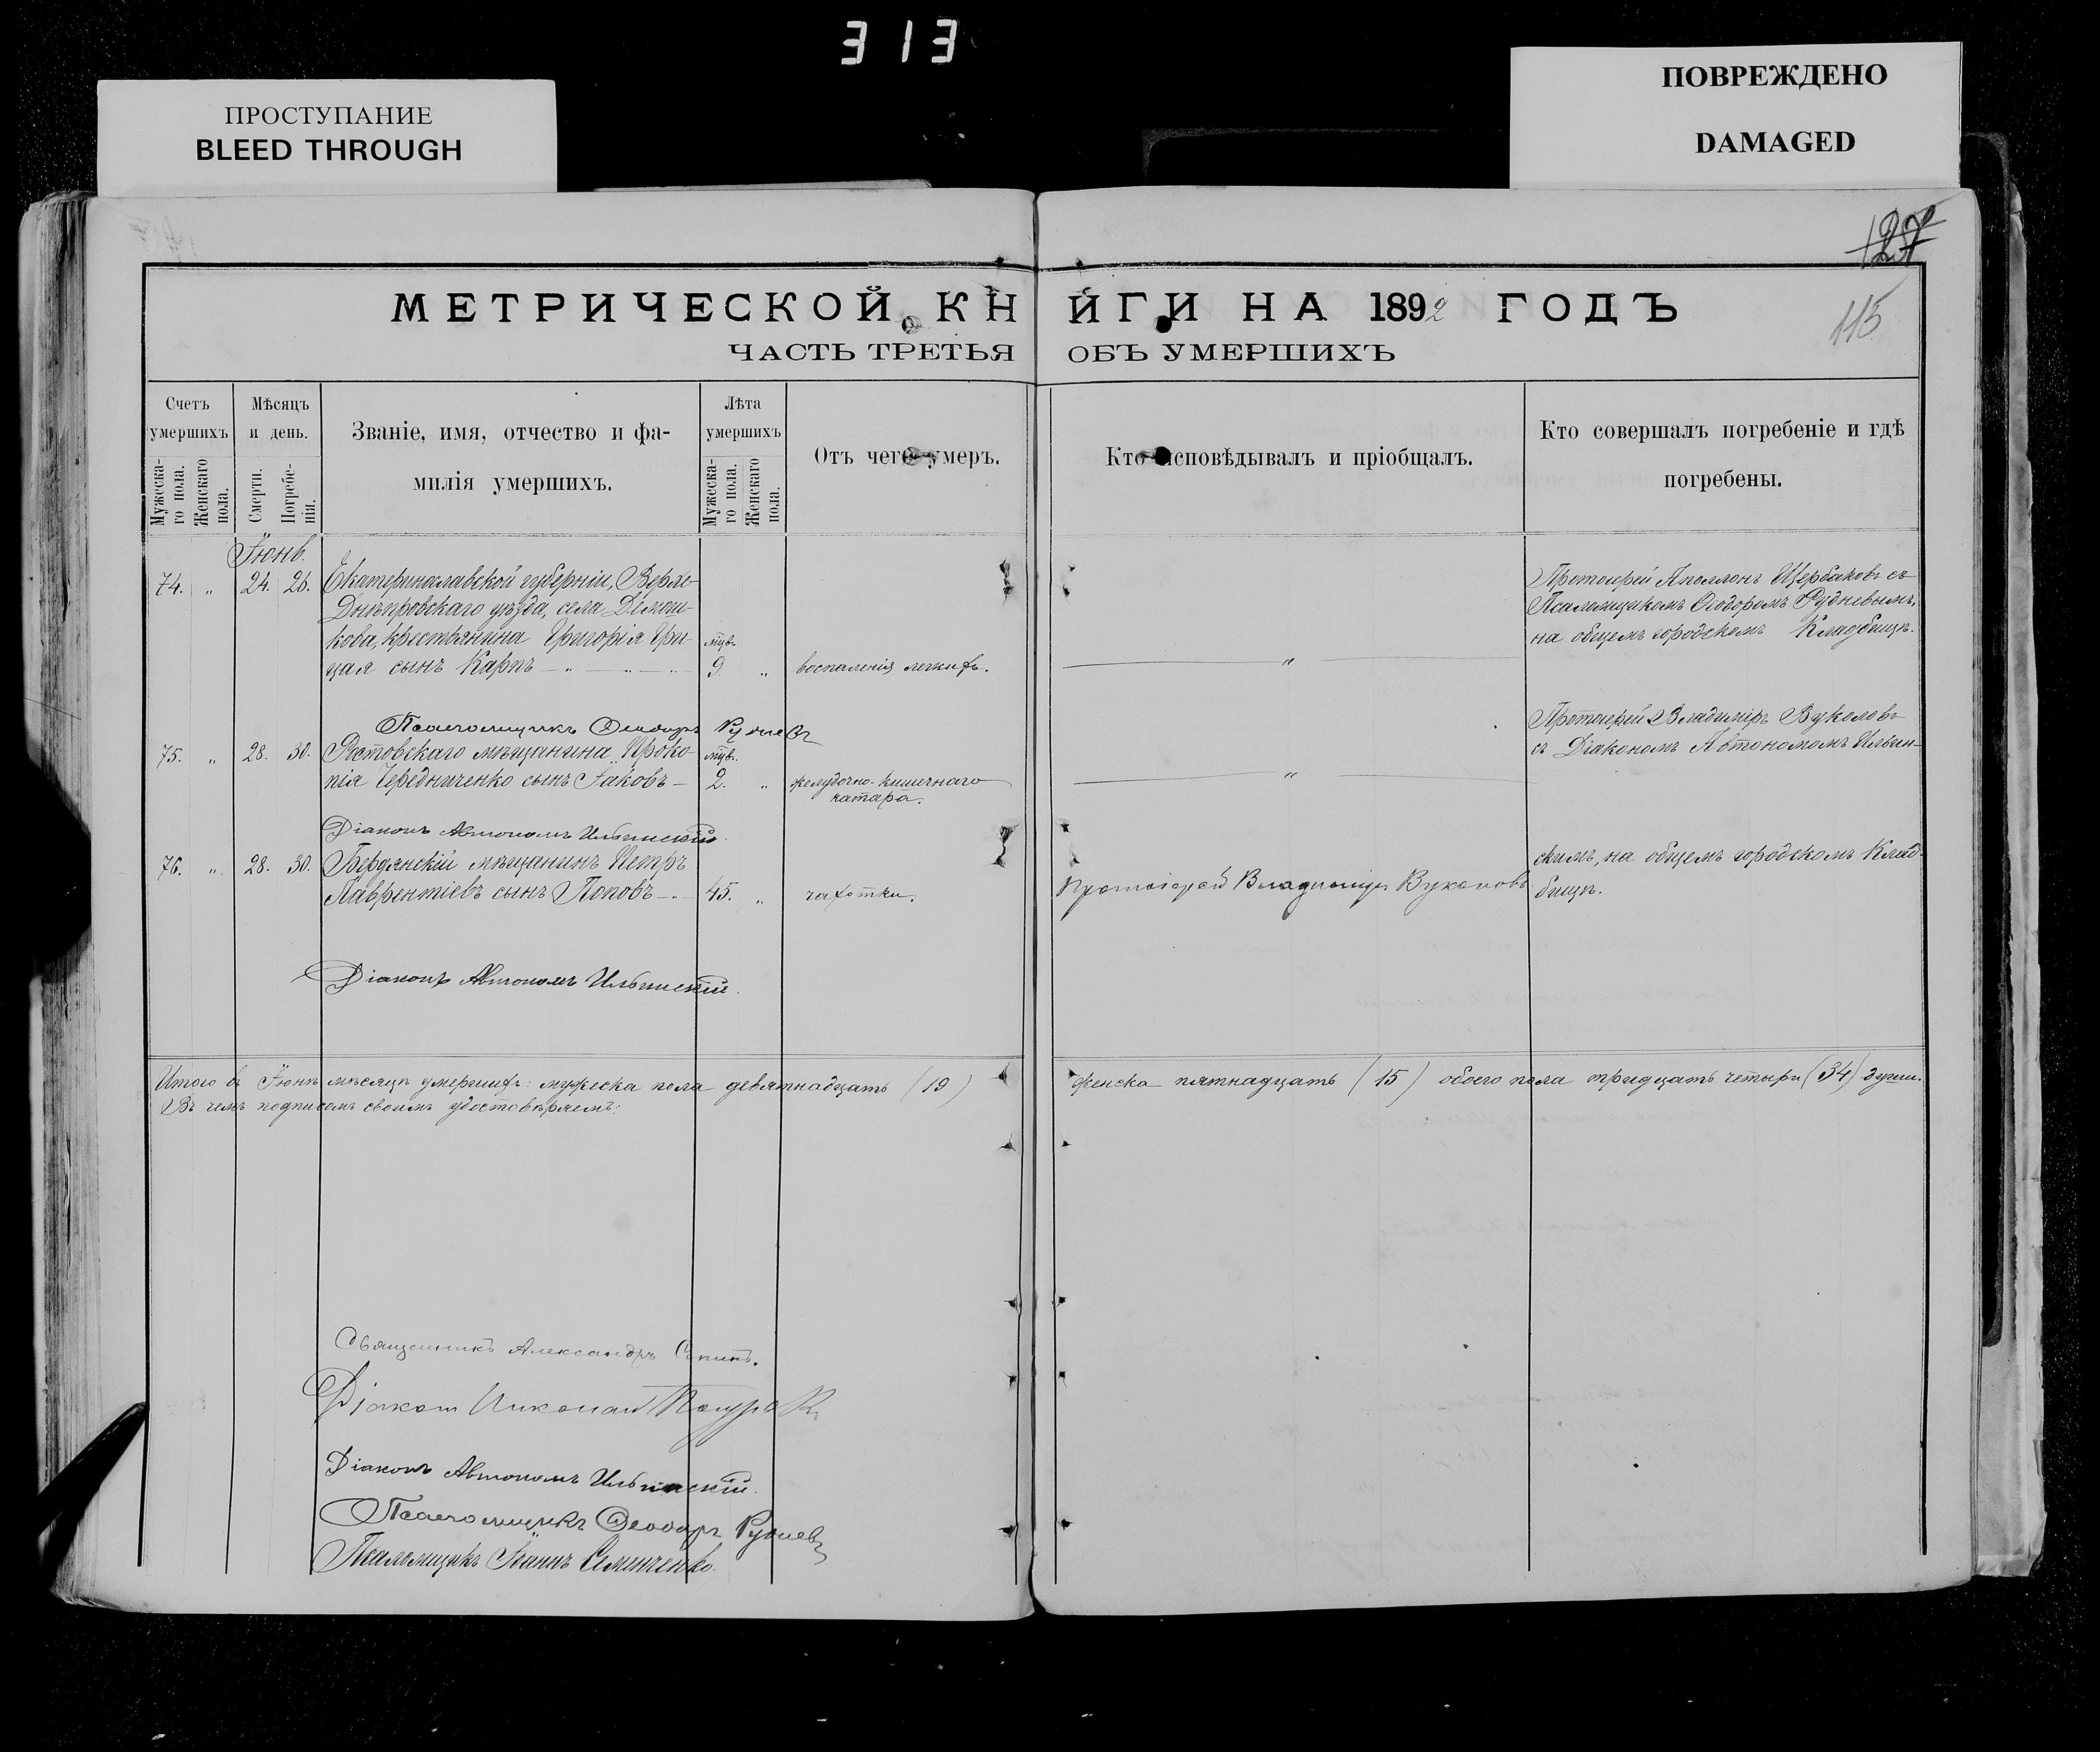 313
ПРОСТУПАНИЕ
BLEED THROUGH
ПОВРЕЖДЕНО
DAMAGED
127
115
МЕТРИЧЕСКОЙ КНИГИ НА 1892 ГОДЪ
ЧАСТЬ ТРЕТЬЯ ОБЪ УМЕРШИХЪ
Счетъ умершихъ
Мужеска-го пола.
Женскаго пола.
Мѣсяцъ и день.
Смерти.
Погребе-нія.
Званіе, имя, отчество и фа-
милія умершихъ.
Лѣта умершихъ
Мужеска-го пола.
Женскаго пола.
Отъ чего умеръ.
Кто исповѣдывалъ и пріобщалъ.
Кто совершалъ погребеніе и гдѣ
погребены.
Іюнь.
74. " 24. 26. Екатеринославской губерніи, Верхне-
Днѣпровскаго уѣзда, села
кова, крестьянина Григорія Гри-
цая сынъ Карпъ
мцв.
9 " воспаленія легкихъ. "
Протоіерей Аполлонъ Щербаковъ съ
Псаломщикомъ Ѳеодоромъ Рудневымъ,
на общемъ городскомъ Кладбищѣ.
Псаломщикъ Ѳеодоръ Рудневъ
75. " 28. 30. Ростовскаго мѣщанина Проко-
пія Чередниченко сынъ Іаковъ
мцв.
2. " желудочно-кишечнаго
катара. "
Протоіерей Владиміръ Вуколовъ
съ Діакономъ Автономомъ Ильин-
Діаконъ Автономъ Ильинскій.
76. " 28. 30. Бердянскій мѣщанинъ Петръ
Лаврентіевъ сынъ Поповъ 45. " чахотки.
Протоіерей Владиміръ Вуколовъ
скимъ, на общемъ городскомъ Клад-
бищѣ.
Діаконъ Автономъ Ильинскій.
Итого въ Іюнѣ мѣсяцѣ умершихъ: мужеска пола девятнадцать (19) женска пятнадцать (15) обоего пола тридцать четыре (34) души.
Въ чемъ подписомъ своимъ удостовѣряемъ:
Священникъ Александръ
Діаконъ Николай
Діаконъ Автономъ Ильинскій.
Псаломщикъ Ѳеодоръ Рудневъ
Псаломщикъ Іоаннъ Семенченко.